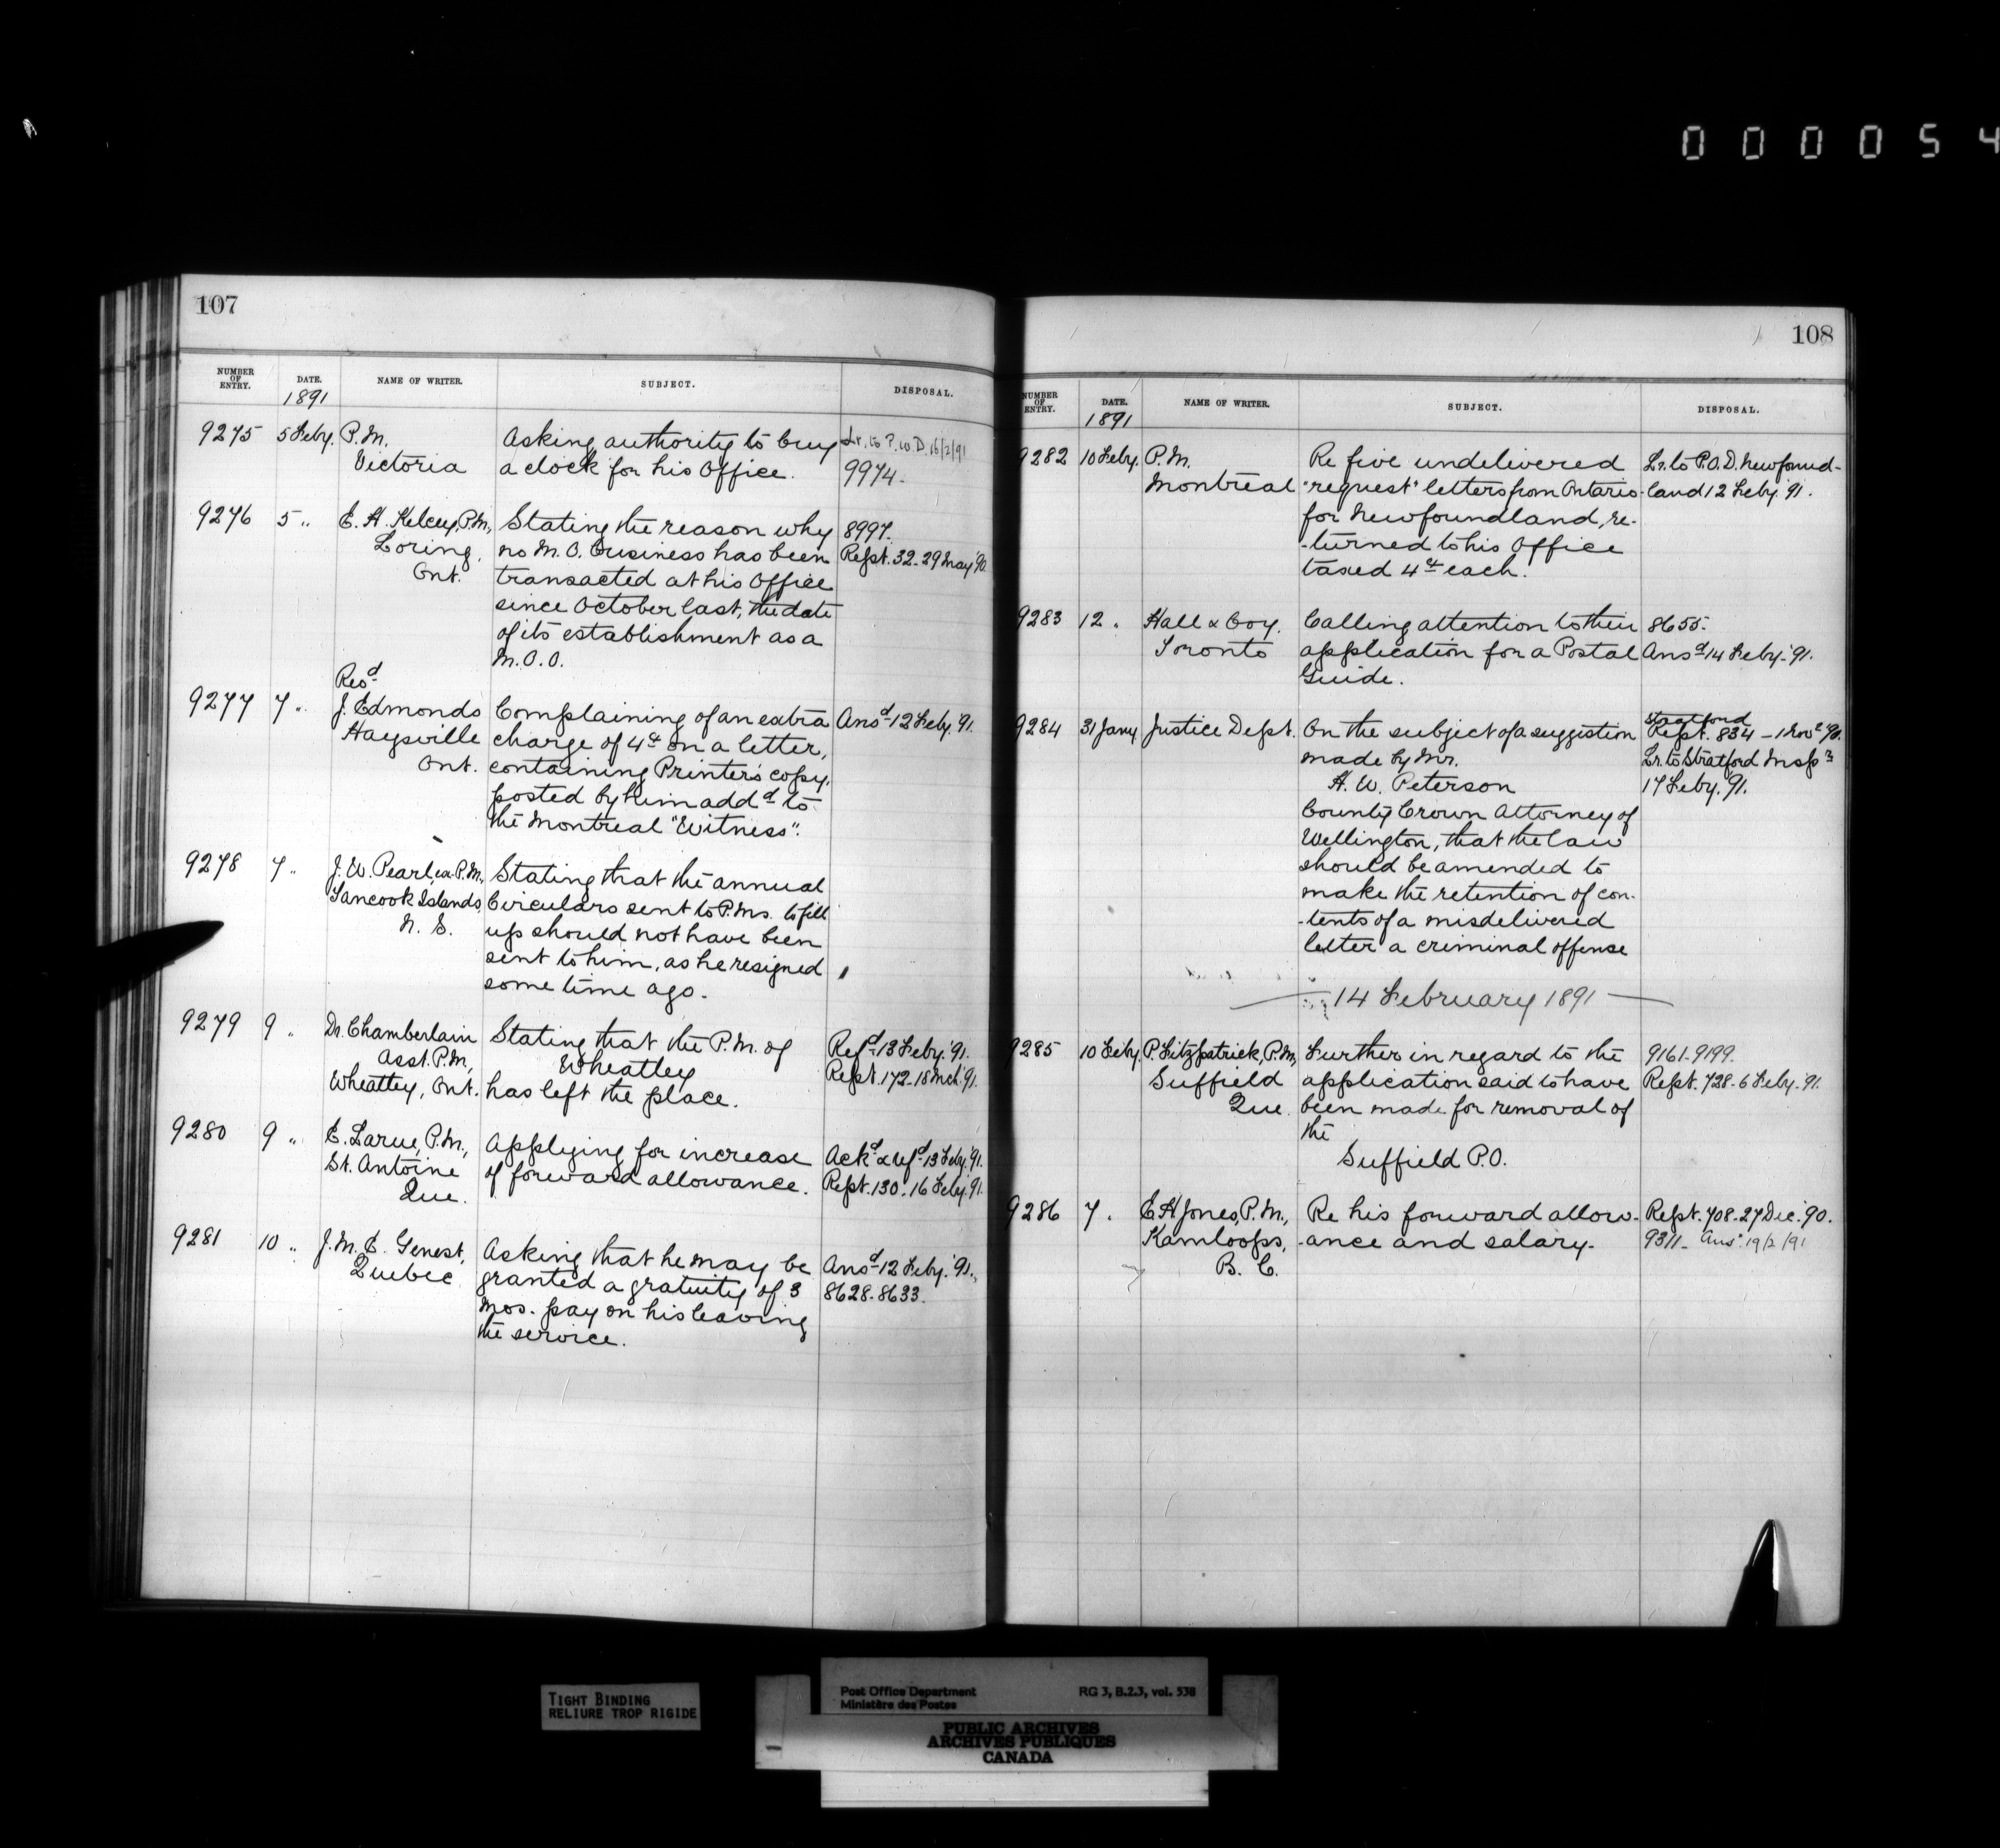 000054
107
NUMBER OF ENTRY. DATE. NAME OF WRITER. SUBJECT. DISPOSAL.
1891
9275 5 Feby. P.M. Asking authority to buy Lr. to P.W.D. 16/2/91
Victoria a clock for his Office. 9974.
9276 5 " E. H. Kelcey, P.M., Stating the reason why 8997.
Loring, no M.O. business has been Rept. 32-29 May '90
Ont. transacted at his Office
since October last, the date
of its establishment as a
M.O.O.
Revd
9277 7 " J. Edmonds Complaining of an extra Ansd 12 Feby. '91.
Haysville charge of 4¢ on a letter,
Ont. containing Printer's copy,
posted by him addd to
the Montreal "Witness".
9278 7 " J. W. Pearl, ex-P.M., Stating that the annual
Tancook Islands, Circulars sent to P.Ms. to fill
N. S. up should not have been
sent to him, as he resigned
some time ago.
9279 9 " Dr. Chamberlain Stating that the P.M. of Refd 13 Feby. '91.
Asst. P.M., Wheatley Rept. 172-18 Mch '91.
Wheatley, Ont. has left the place.
9280 9 " E. Larue, P.M., Applying for increase Ackd & refd 13 Feby. '91.
St. Antoine of forward allowance. Rept. 130. 16 Feby. '91.
Que.
9281 10 " J. M. E. Genest, Asking that he may be Ansd 12 Feby. '91.
Quebec granted a gratuity of 3 8628-8633.
mos. pay on his leaving
the service.
108
NUMBER OF ENTRY. DATE. NAME OF WRITER. SUBJECT. DISPOSAL.
1891
9282 10 Feby. P.M. Re five undelivered Lr. to P.O.D. Newfound-
Montreal "request" letters from Ontario land 12 Feby. '91.
for Newfoundland, re-
-turned to his Office
taxed 4¢ each.
9283 12 " Hall & Coy. Calling attention to their 8655.
Toronto application for a Postal Ansd 14 Feby. '91.
Guide.
Stratford
9284 31 Jany. Justice Dept. On the subject of a suggestion Rept. 834 - 1 Novr '90.
made by Mr. Lr. to Stratford Inspr
H. W. Peterson 17 Feby. '91.
County Crown Attorney of
Wellington, that the law
should be amended to
make the retention of con-
-tents of a misdelivered
letter a criminal offense
14 February 1891
9285 10 Feby. P. Fitzpatrick, P.M., Further in regard to the 9161-9199.
Suffield application said to have Rept. 728-6 Feby. 91.
Que. been made for removal of
the
Suffield P.O.
9286 7 " E H Jones, P.M., Re his forward allow- Rept. 708-27 Dec. '90.
Kamloops, -ance and salary. 9311- Ansd 19/2/91
B. C.
TIGHT BINDING
RELIURE TROP RIGIDE
Post Office Department RG 3, B.2.3, vol. 538
Ministère des Postes
PUBLIC ARCHIVES
ARCHIVES PUBLIQUES
CANADA